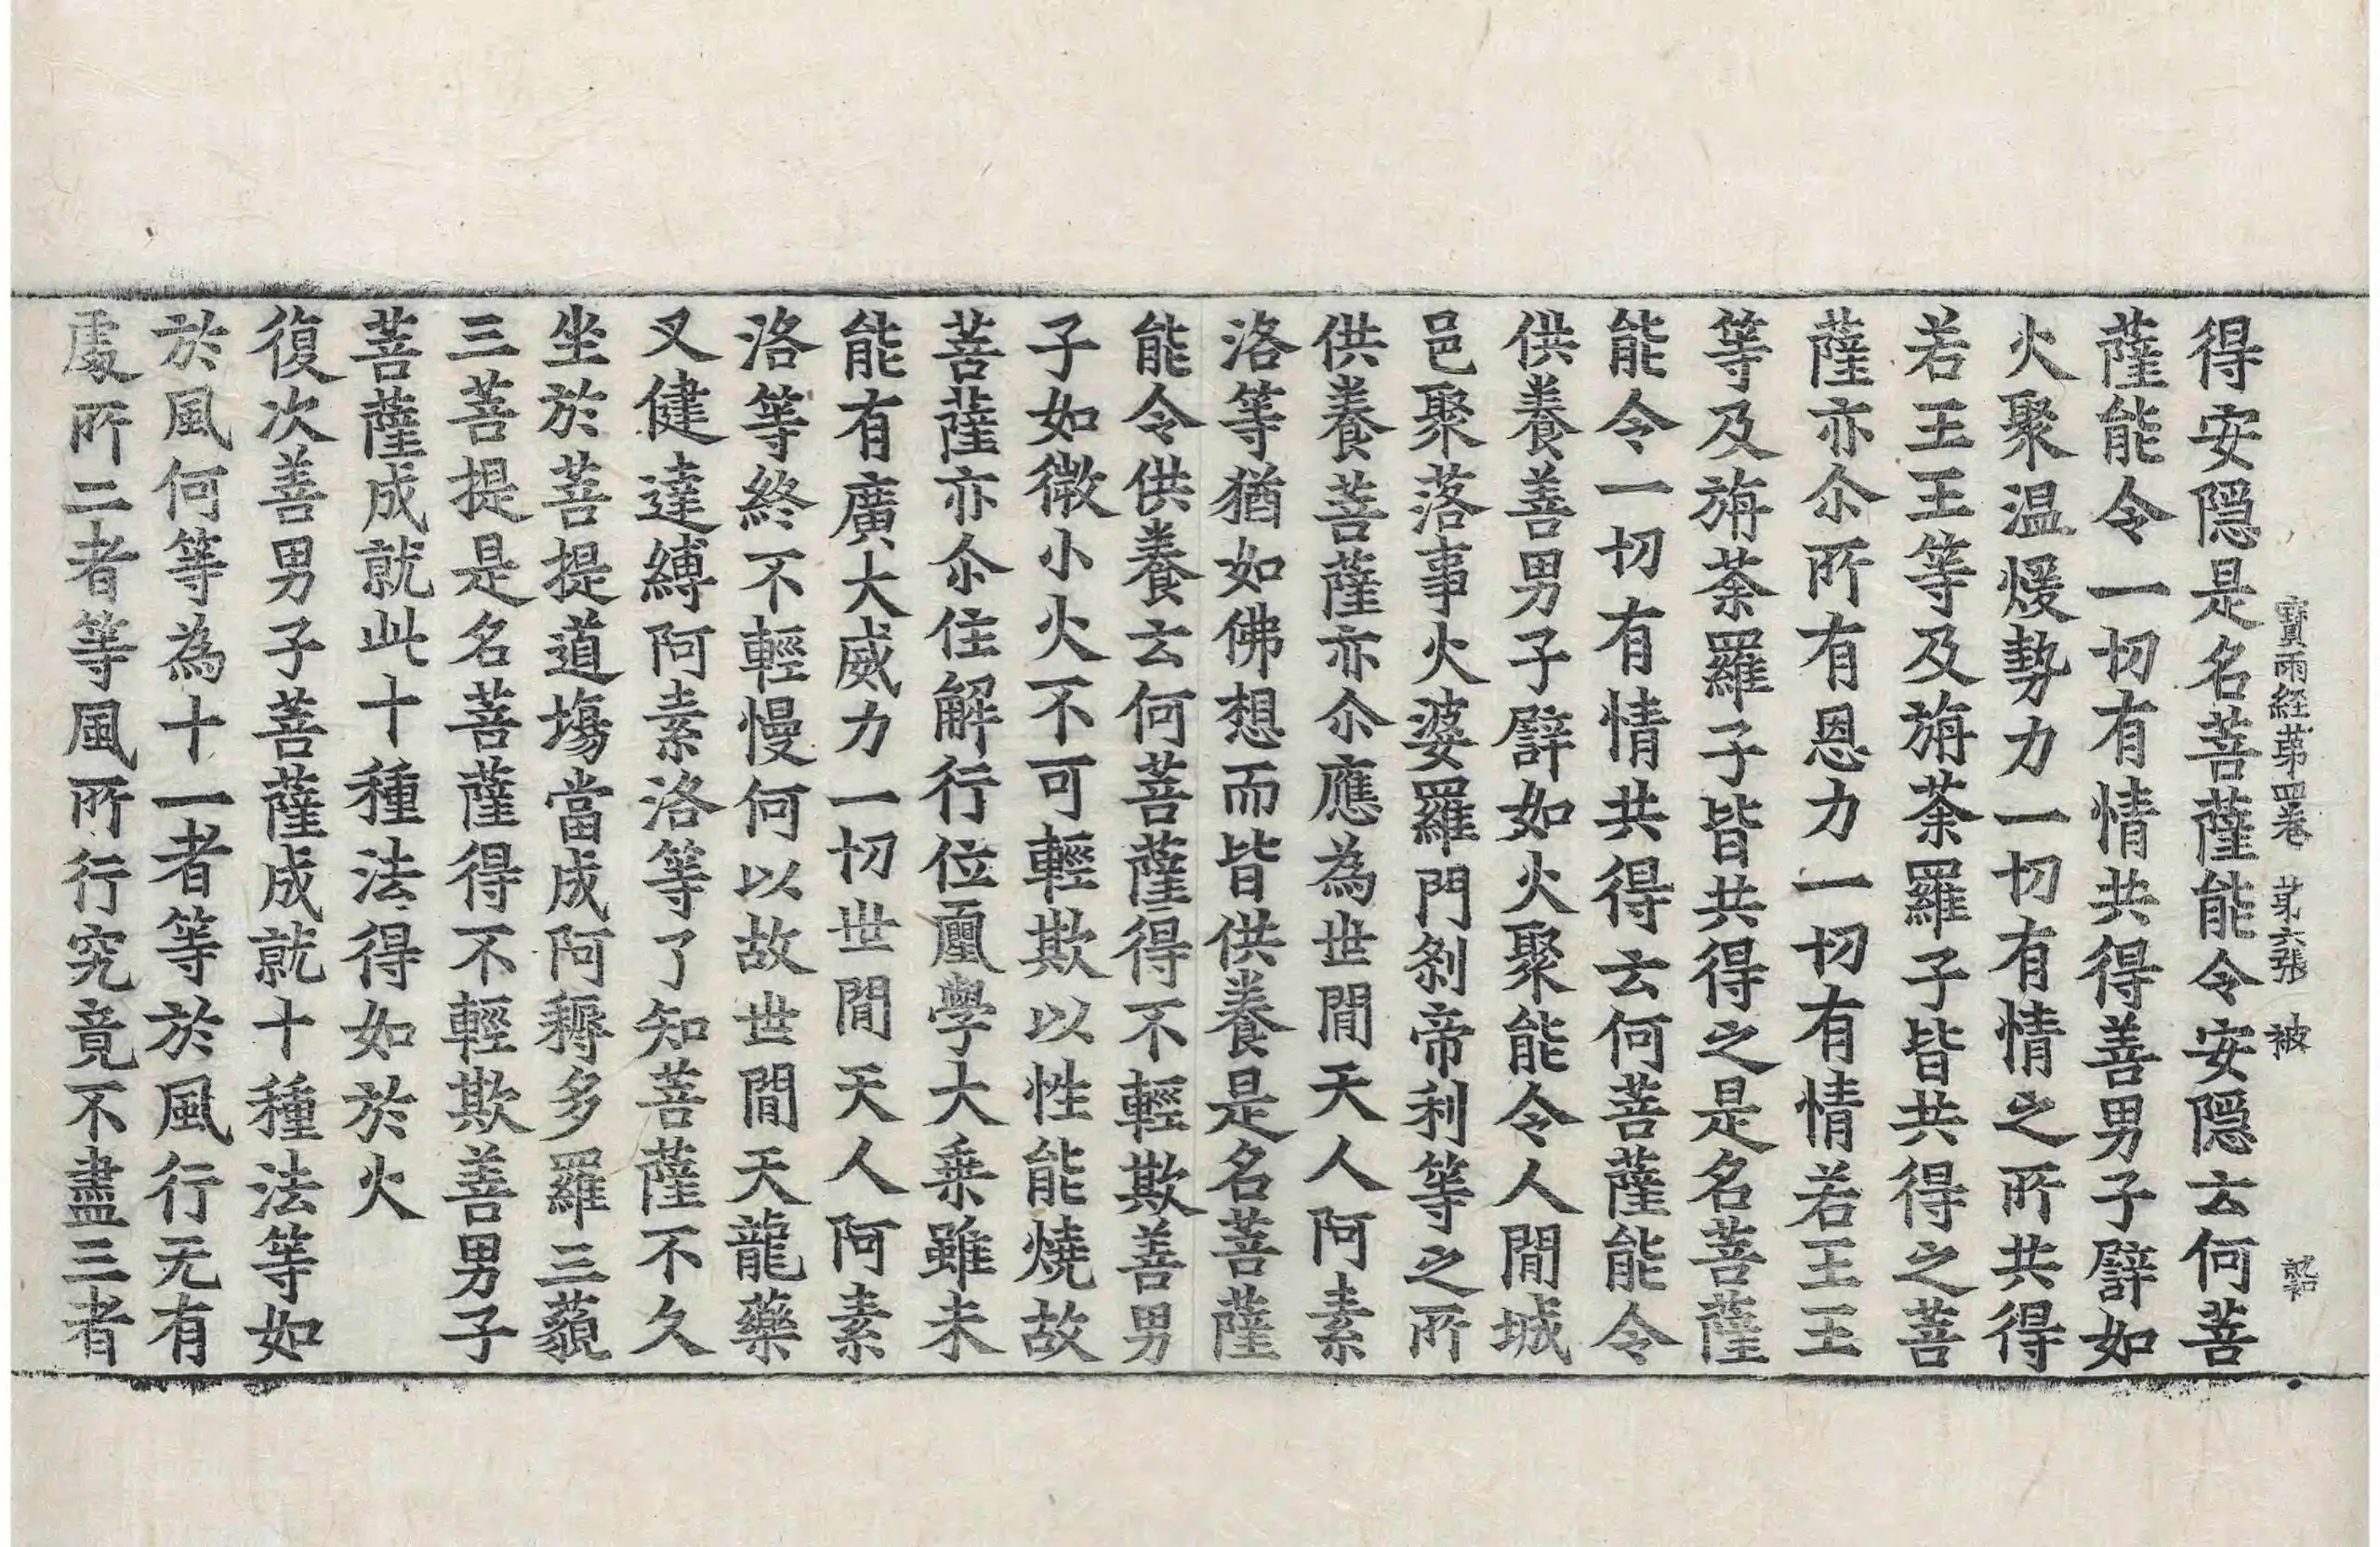 寶雨經苐四卷 苐六張 被
得安隱是名菩薩能令安隱云何菩
薩能令一切有情共得善男子譬如
火聚温煖勢力一切有情之所共得
若王王等及旃荼羅子皆共得之菩
薩亦尒所有恩力一切有情若王王
等及旃荼羅子皆共得之是名菩薩
能令一切有情共得云何菩薩能令
供養善男子譬如火聚能令人閒城
邑聚落事火婆羅門剎帝利等之所
供養菩薩亦尒應為世閒天人阿素
洛等猶如佛想而皆供養是名菩薩
能令供養云何菩薩得不輕欺善男
子如微小火不可輕欺以性能燒故
菩薩亦尒住解行位𠃵學大乗雖未
能有廣大威力一切世閒天人阿素
洛等終不輕慢何以故世閒天龍藥
叉健達縛阿素洛等了知菩薩不久
坐於菩提道塲當成阿耨多羅三藐
三菩提是名菩薩得不輕欺善男子
菩薩成就此十種法得如於火
復次善男子菩薩成就十種法等如
於風何等為十一者等於風行无有
處所二者等風所行究竟不盡三者